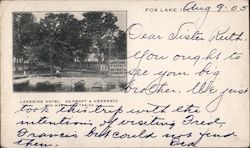 FOX LAKE
Aug 9-05
Dear Sister Ruth.
You ought to
see your big
brother. We just
LAKESIDE HOTEL
took this trip with the
intention of visiting Fred
Francis but could not find
them.